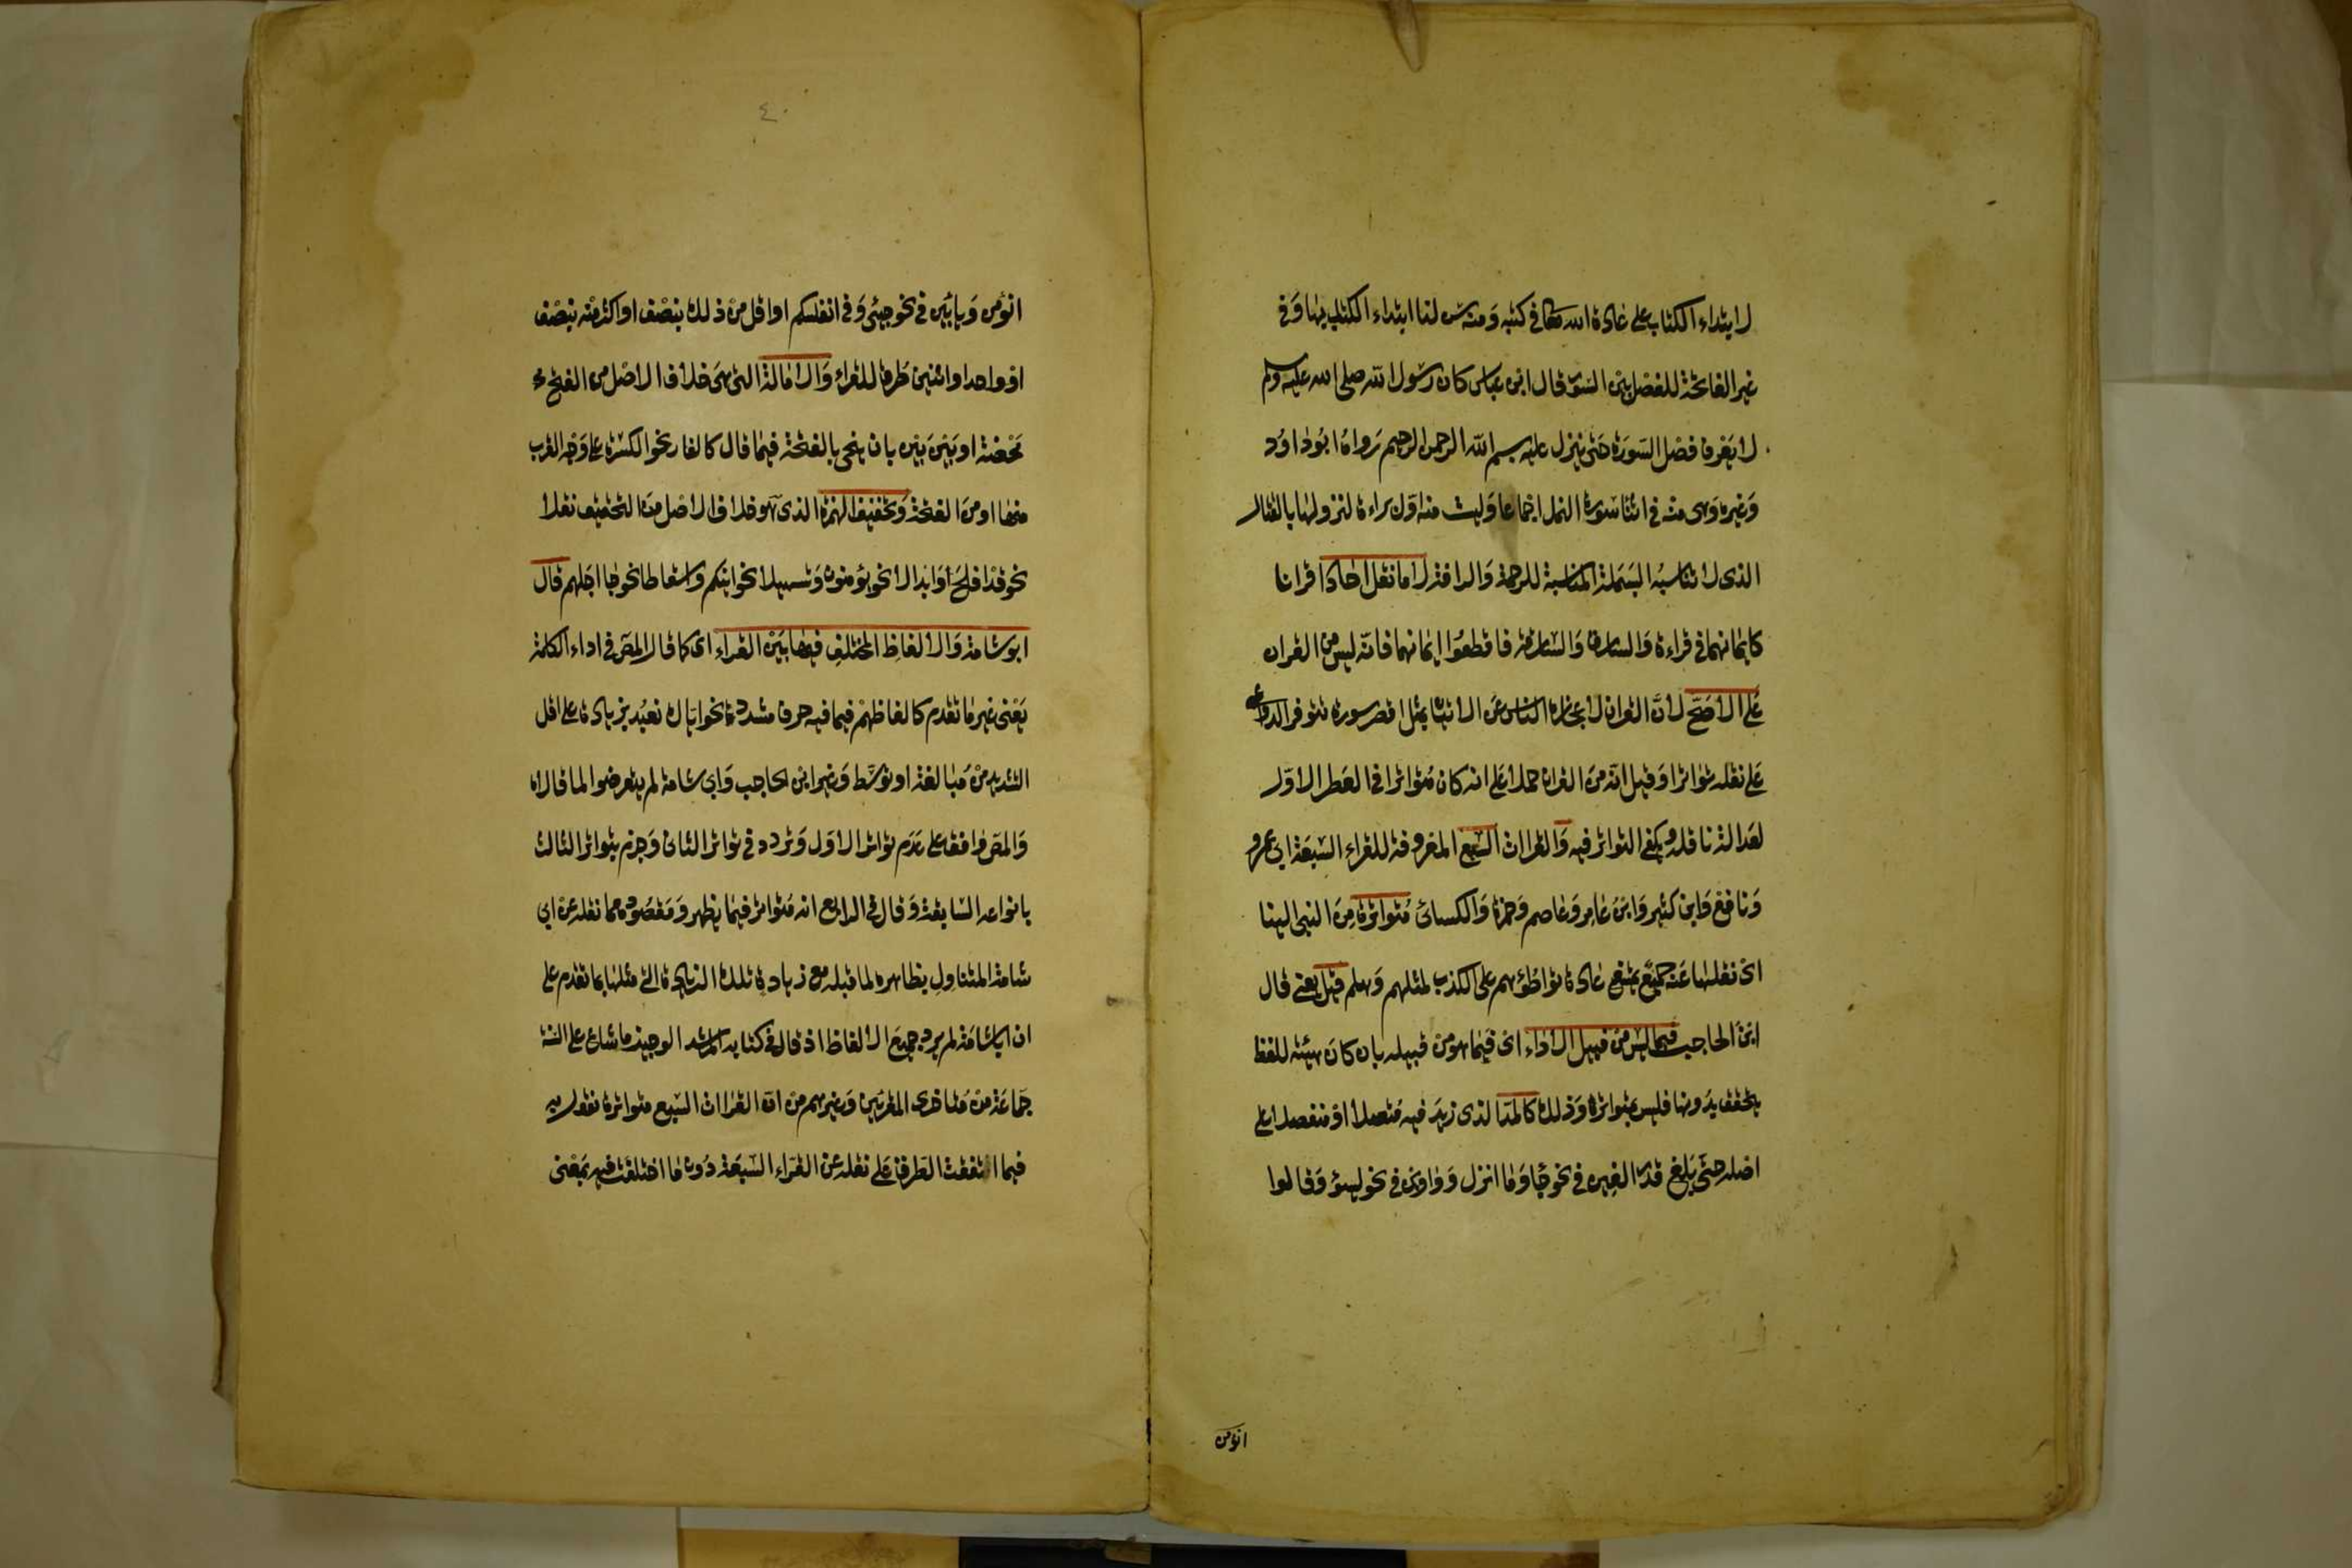 لابتداء الكتاب على عادة الله في كتبه ومنه سن لنا ابتداء الكتاب بها وفي
غير الفاتحة للفصل بين السور قال ابن عباس كان رسول الله صلى الله عليه وسلم
لا يعرف فصل السورة حتى ينزل عليه بسم الله الرحمن الرحيم رواه ابو داود
وغيره وهي منه في اثنا سورة النمل اجماعا وليست منه اول براءة لنزولها بالقتال
الذي لا تناسبه البسملة المناسبة للرحمة والرافة لا ما نقل احادا قرانا
كايمانهما في قراءة والسارق والسارقة فاقطعوا ايمانهما فانه ليس من القران
على الاصح لان القران لاعجازه الناس عن الاتيان بمثل اقصر سورة تتوفر الدواعي
على نقله تواترا وقيل انه من القران حملا على انه كان متواترا في العصر الاول
لعدالة ناقله ويكفي التواتر فيه والقراات السبع المعروفة للقراء السبعة ابي عمرو
ونافع وابن كثير وابن عامر وعاصم وحمزة والكسائي متواترة من النبي الينا
اي نقلها عنه جمع يمتنع عادة تواطؤهم على الكذب لمثلهم وهلم قيل يعني قال
ابن الحاجب فيما ليس من قبيل الاداء اي فيما هو من قبيله بان كان هيئة للفظ
يتحقق بدونها فليس بمتواتر وذلك كالمد الذي زيد فيه متصلا او منفصلا على
اصله حتى بلغ قدر الفين في نحو جا وما انزل وواوين في نحو لسوء وقالوا
انؤمن
٤٠
انؤمن وياءين في نحو جيئ وفي انفسكم او اقل من ذلك بنصف او اكثر منه بنصف
او واحد او اثنين طرق للقراء والامالة التي هي خلاف الاصل من الفتح
محضة او بين بين بان ينحى بالفتحة فيما قال كالغار نحو الكسرة على وجه القرب
منها او من الفتحة وتخفيف الهمزة الذي هو خلاف الاصل من التحقيق نقلا
نحو قد افلح وابدالا نحو يؤمنون وتسهيلا نحو اينكم واسقاطا نحو جا اجلهم قال
ابو شامة والالفاظ المختلف فيها بين القراء اي كما قال المص في اداء الكلمة
يعني غير ما تقدم كالفاظهم فيما فيه حرف مشدد نحو اياك نعبد بزيادة على اقل
التشديد من مبالغة او توسط وغير ابن الحاجب وابي شامة لم يتعرضوا لما قالاه
والمص وافق على عدم تواتر الاول وتردد في تواتر الثاني وجزم بتواتر الثالث
بانواعه السابقة وقال في الرابع انه متواتر فيما يظهر ومقصوده مما نقله عن ابي
شامة المتناول بظاهره لما قبله مع زيادة تلك الزيادة التي مثلها بما تقدم على
ان ابا شامة لم يرد جميع الالفاظ اذ قال في كتابه المرشد الوجيز ما شاع على السنة
جماعة من متاخري المقرئين وغيرهم من ان القراات السبع متواترة نقول به
فيما اتفقت الطرق على نقله عن القراء السبعة دون ما اختلفت فيه بمعنى